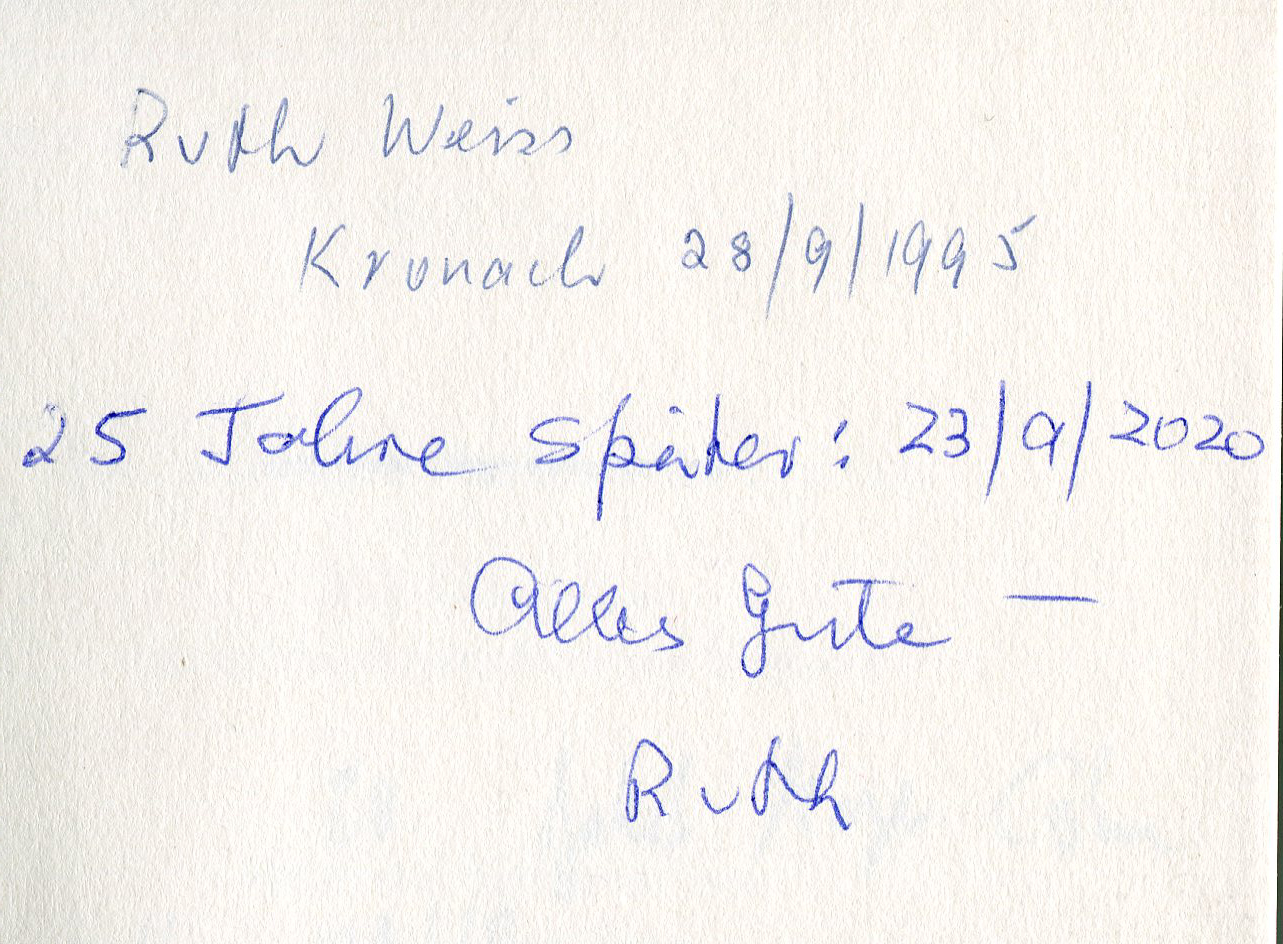 Ruth Weiss
Kronach 28/9/1995
25 Jahre später: 23/9/2020
Alles Gute –
Ruth